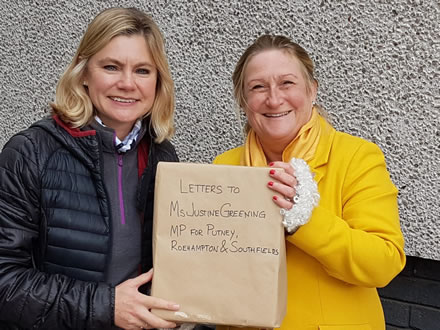 LETTERS TO
MS JUSTINE GREENING
MP FOR PUTNEY,
ROEHAMPTON & SOUTHFIELDS